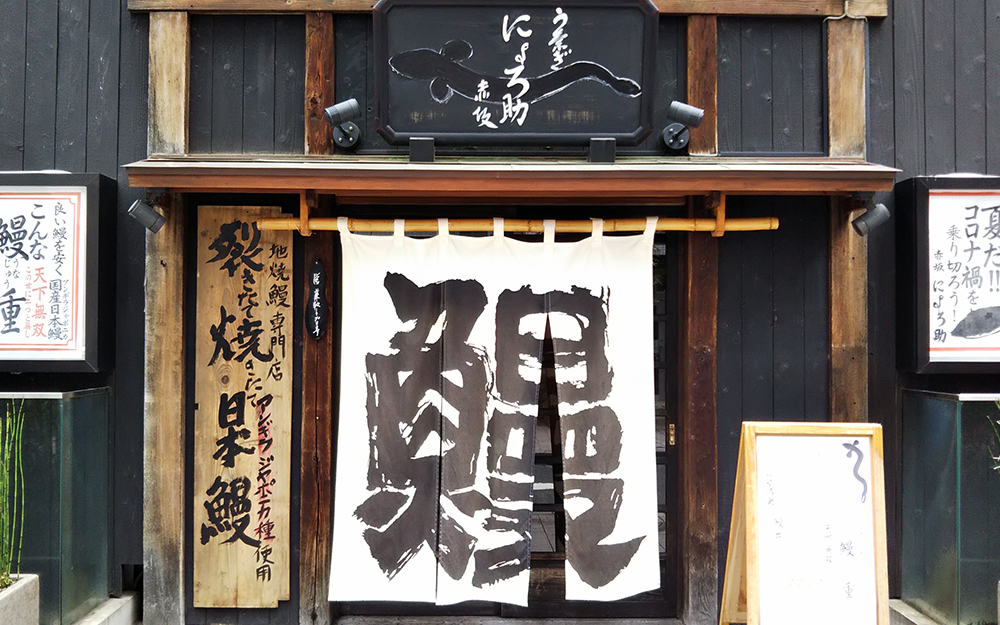 うなぎ
によろ助
赤坂
良い鰻を安く
こんな
鰻
うな
じゅう
重
天下無双
国産日本鰻
地焼鰻専門店
裂きたて焼きたて
日本鰻
アンギラジャポニカ種使用
鰻
夏だ!!
コロナ禍を
乗り切ろう!
赤坂 によろ助
鰻
重